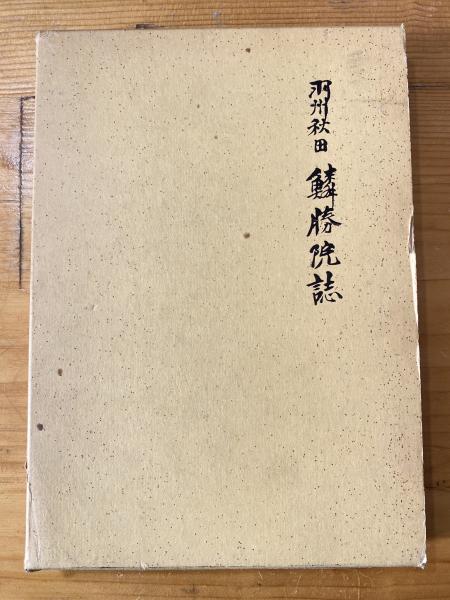 羽州秋田 鱗勝院誌